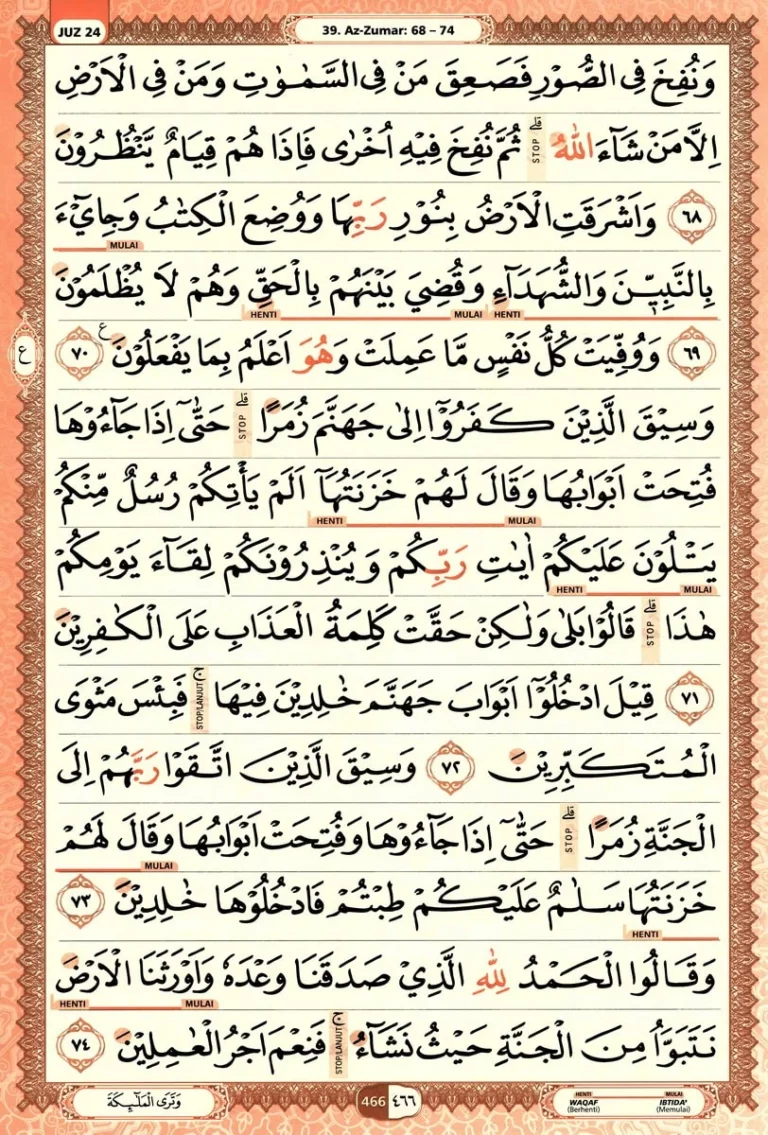 JUZ 24
39. Az-Zumar: 68 – 74
وَنُفِخَ فِى الصُّوْرِ فَصَعِقَ مَنْ فِى السَّمٰوٰتِ وَمَنْ فِى الْاَرْضِ
اِلَّا مَنْ شَاۤءَ اللّٰهُ ۗ STOP ثُمَّ نُفِخَ فِيْهِ اُخْرٰى فَاِذَا هُمْ قِيَامٌ يَّنْظُرُوْنَ
٦٨ وَاَشْرَقَتِ الْاَرْضُ بِنُوْرِ رَبِّهَا وَوُضِعَ الْكِتٰبُ وَجِايْۤءَ
MULAI
بِالنَّبِيّٖنَ وَالشُّهَدَاۤءِ وَقُضِيَ بَيْنَهُمْ بِالْحَقِّ وَهُمْ لَا يُظْلَمُوْنَ
HENTI MULAI HENTI
٦٩ وَوُفِّيَتْ كُلُّ نَفْسٍ مَّا عَمِلَتْ وَهُوَ اَعْلَمُ بِمَا يَفْعَلُوْنَ ࣖ ٧٠
ع
وَسِيْقَ الَّذِيْنَ كَفَرُوْٓا اِلٰى جَهَنَّمَ زُمَرًا ۗ STOP حَتّٰىٓ اِذَا جَاۤءُوْهَا
فُتِحَتْ اَبْوَابُهَا وَقَالَ لَهُمْ خَزَنَتُهَآ اَلَمْ يَأْتِكُمْ رُسُلٌ مِّنْكُمْ
HENTI MULAI
يَتْلُوْنَ عَلَيْكُمْ اٰيٰتِ رَبِّكُمْ وَيُنْذِرُوْنَكُمْ لِقَاۤءَ يَوْمِكُمْ
HENTI MULAI
هٰذَا ۗ STOP قَالُوْا بَلٰى وَلٰكِنْ حَقَّتْ كَلِمَةُ الْعَذَابِ عَلَى الْكٰفِرِيْنَ
٧١ قِيْلَ ادْخُلُوْٓا اَبْوَابَ جَهَنَّمَ خٰلِدِيْنَ فِيْهَا ۚ STOP/LANJUT فَبِئْسَ مَثْوَى
الْمُتَكَبِّرِيْنَ ٧٢ وَسِيْقَ الَّذِيْنَ اتَّقَوْا رَبَّهُمْ اِلَى
الْجَنَّةِ زُمَرًا ۗ STOP حَتّٰىٓ اِذَا جَاۤءُوْهَا وَفُتِحَتْ اَبْوَابُهَا وَقَالَ لَهُمْ
MULAI
خَزَنَتُهَا سَلٰمٌ عَلَيْكُمْ طِبْتُمْ فَادْخُلُوْهَا خٰلِدِيْنَ ٧٣
HENTI
وَقَالُوا الْحَمْدُ لِلّٰهِ الَّذِيْ صَدَقَنَا وَعْدَهٗ وَاَوْرَثَنَا الْاَرْضَ
HENTI MULAI
نَتَبَوَّاُ مِنَ الْجَنَّةِ حَيْثُ نَشَاۤءُ ۚ STOP/LANJUT فَنِعْمَ اَجْرُ الْعٰمِلِيْنَ ٧٤
وَتَرَى الْمَلٰۤىِٕكَةَ
466 ٤٦٦
HENTI MULAI
WAQAF IBTIDA'
(Berhenti) (Memulai)